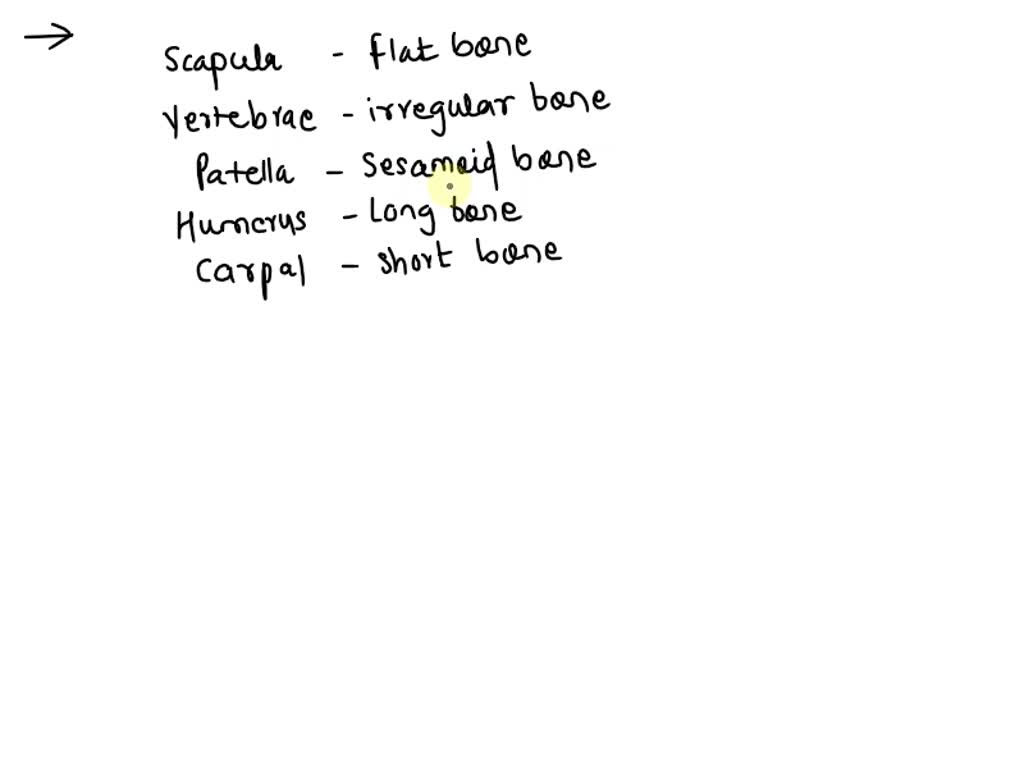 → Scapula - flat bone
Vertebrae - irregular bone
Patella - Sesamoid bone
Humerus - Long bone
Carpal - short bone